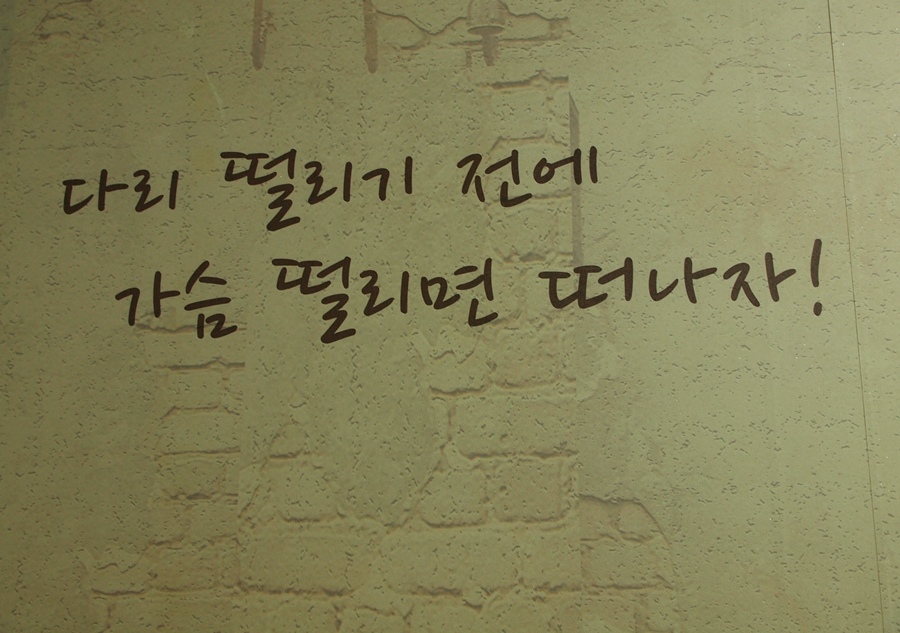 다리 떨리기 전에
가슴 떨리면 떠나자!